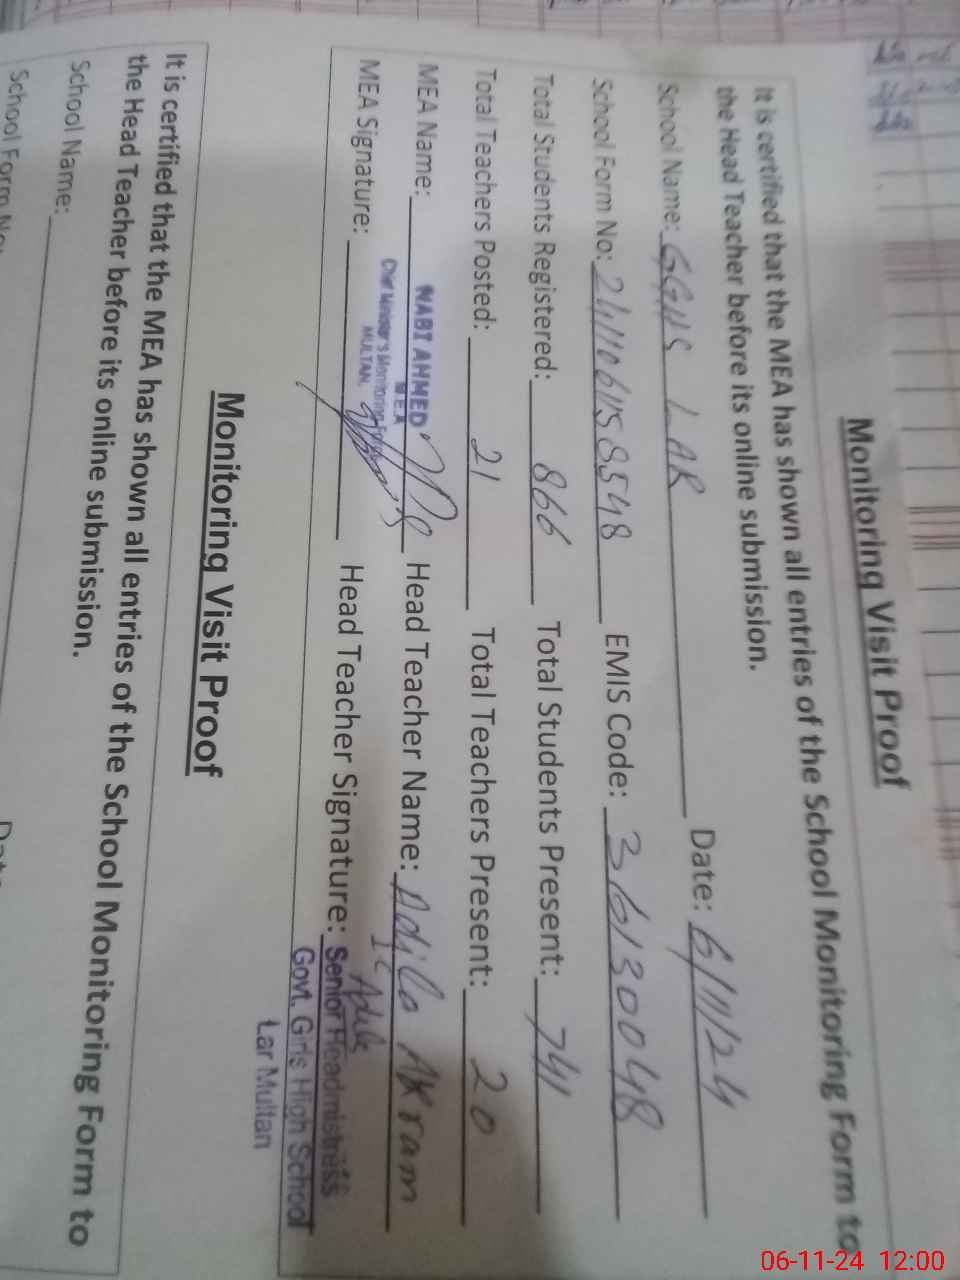 Monitoring Visit Proof
It is certified that the MEA has shown all entries of the School Monitoring Form to
the Head Teacher before its online submission.
School Name: GGHS LAR Date: 6/11/24
School Form No: EMIS Code: 36130048
Total Students Registered: 866 Total Students Present: 741
Total Teachers Posted: 21 Total Teachers Present: 20
MEA Name: NABI AHMED Head Teacher Name: Adila Akram
M.E.A
Chief Minister's Monitoring Force
MULTAN.
MEA Signature: Head Teacher Signature: Adila
Senior Headmistress
Govt. Girls High School
Lar Multan
Monitoring Visit Proof
It is certified that the MEA has shown all entries of the School Monitoring Form to
the Head Teacher before its online submission.
School Name:
School Form No:
06-11-24 12:00